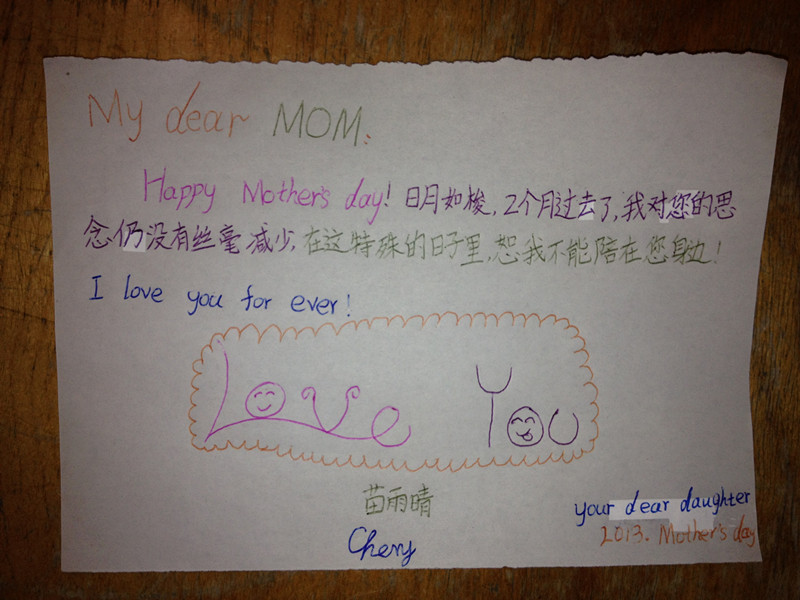 My dear MOM:
Happy Mother's day! 日月如梭, 2个月过去了, 我对您的思
念仍没有丝毫减少, 在这特殊的日子里, 恕我不能陪在您身边!
I love you for ever!
Love You
苗雨晴
your dear daughter
Chery
2013. Mother's day